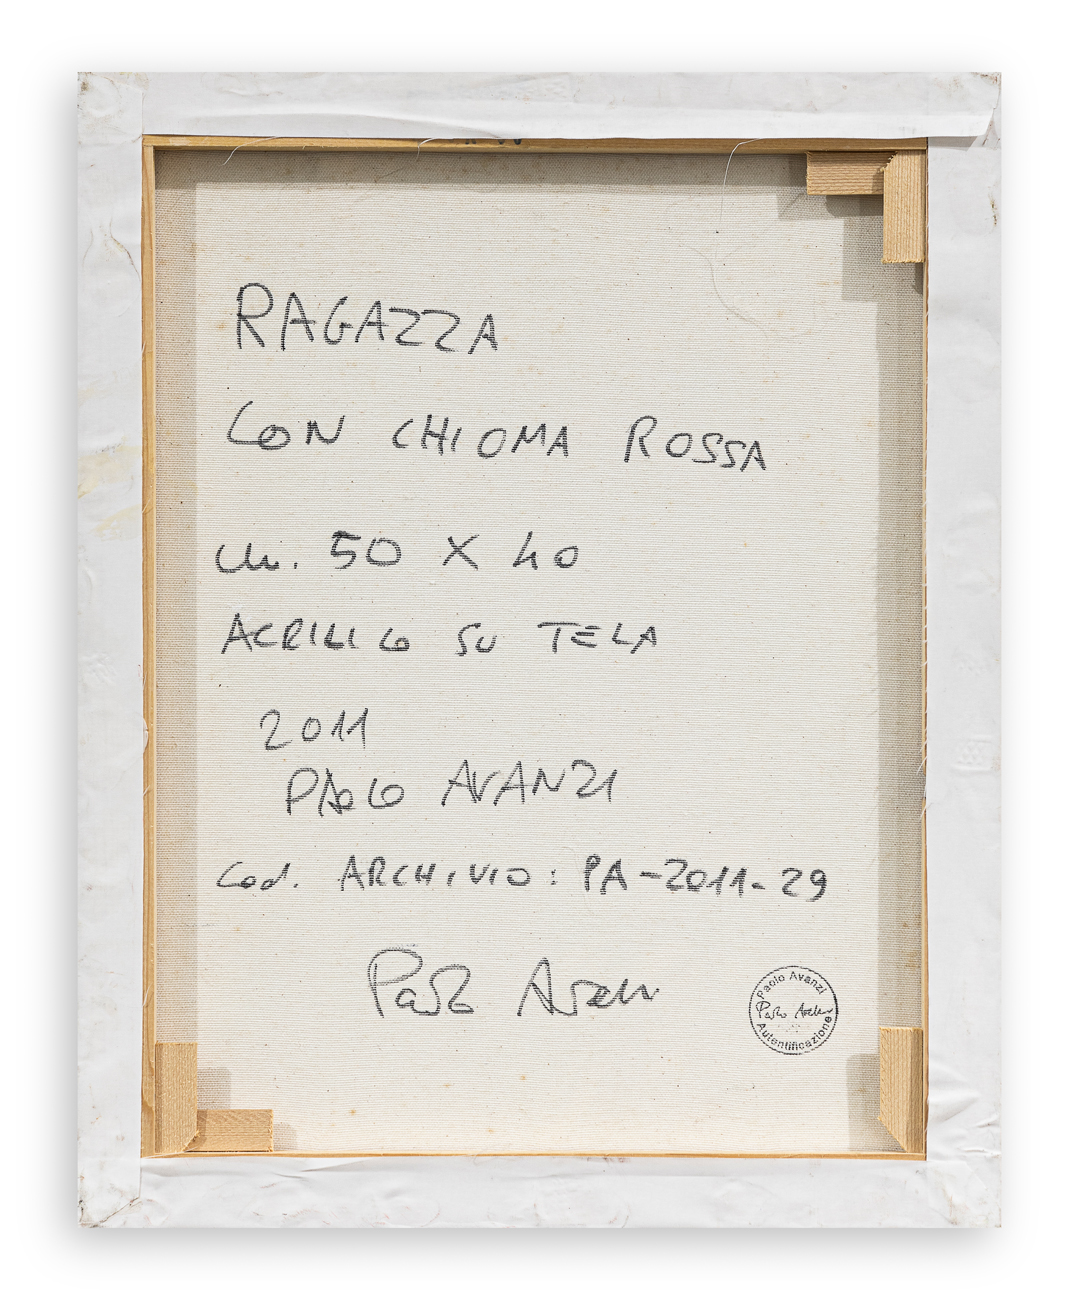 RAGAZZA
CON CHIOMA ROSSA
cm. 50 X 40
ACRILICO SU TELA
2011
PAOLO AVANZI
Cod. ARCHIVIO: PA-2011-29
Paolo Avanzi
Paolo Avanzi
Paolo Avanzi
Autentificazione